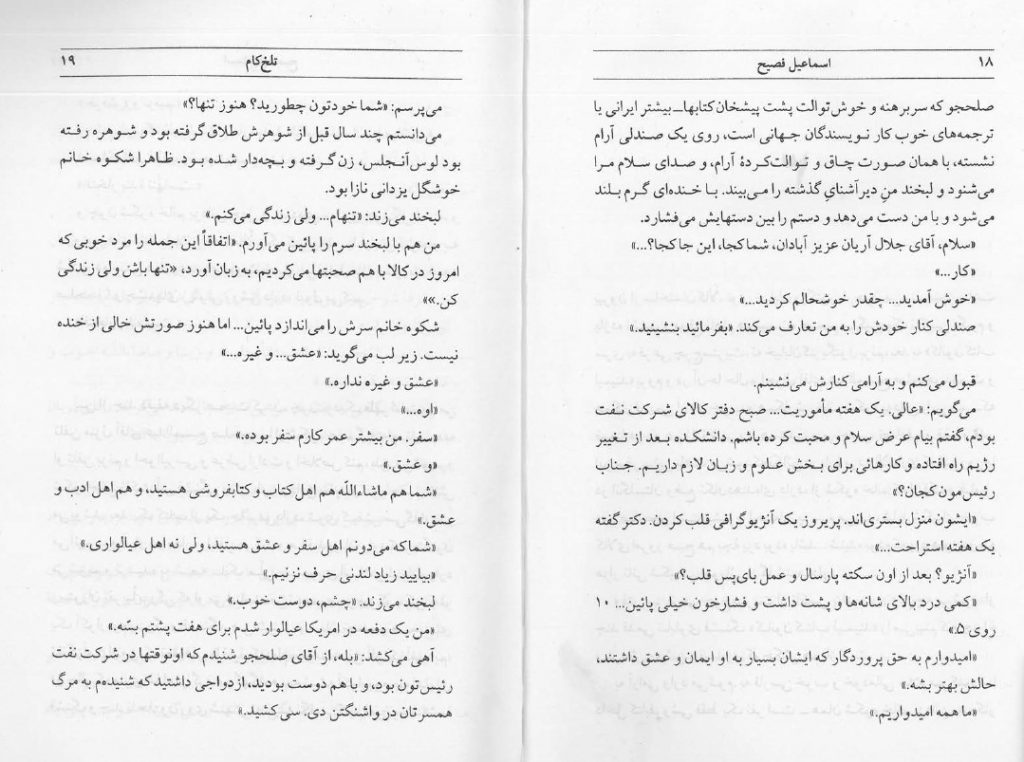 ۱۸
اسماعیل فصیح
صلحجو که سربرهنه و خوش‌توالت پشت پیشخان کتابها_ بیشتر ایرانی یا
ترجمه‌های خوب کار نویسندگان جهانی است، روی یک صندلی آرام
نشسته، با همان صورت چاق و توالت‌کردهٔ آرام، و صدای سلام مرا
می‌شنود و لبخند منِ دیرآشنایِ گذشته را می‌بیند. با خنده‌ای گرم بلند
می‌شود و با من دست می‌دهد و دستم را بین دستهایش می‌فشارد.
«سلام، آقای جلال آریان عزیز آبادان، شما کجا، این جا کجا؟...»
«کار...»
«خوش آمدید... چقدر خوشحالم کردید...»
صندلی کنار خودش را به من تعارف می‌کند. «بفرمائید بنشینید.»
قبول می‌کنم و به آرامی کنارش می‌نشینم.
می‌گویم: «عالی. یک هفته مأموریت... صبح دفتر کالای شرکت نفت
بودم، گفتم بیام عرض سلام و محبت کرده باشم. دانشکده بعد از تغییر
رژیم راه افتاده و کارهائی برای بخش علوم و زبان لازم داریم. جناب
رئیس‌مون کجان؟»
«ایشون منزل بستری‌اند. پریروز یک آنژیوگرافی قلب کردن. دکتر گفته
یک هفته استراحت...»
«آنژیو؟ بعد از اون سکته پارسال و عمل بای‌پس قلب؟»
«کمی درد بالای شانه‌ها و پشت داشت و فشارخون خیلی پائین... ۱۰
روی ۵.»
«امیدوارم به حق پروردگار که ایشان بسیار به او ایمان و عشق داشتند،
حالش بهتر بشه.»
«ما همه امیدواریم.»
تلخ‌کام
۱۹
می‌پرسم: «شما خودتون چطورید؟ هنوز تنها؟»
می‌دانستم چند سال قبل از شوهرش طلاق گرفته بود و شوهره رفته
بود لوس‌آنجلس، زن گرفته و بچه‌دار شده بود. ظاهرا شکوه خانم
خوشگل یزدانی نازا بود.
لبخند می‌زند: «تنهام... ولی زندگی می‌کنم.»
من هم با لبخند سرم را پائین می‌آورم. «اتفاقاً این جمله را مرد خوبی که
امروز در کالا با هم صحبتها می‌کردیم، به زبان آورد، «تنها باش ولی زندگی
کن.»»
شکوه خانم سرش را می‌اندازد پائین... اما هنوز صورتش خالی از خنده
نیست. زیر لب می‌گوید: «عشق... و غیره...»
«عشق و غیره نداره.»
«اوه...»
«سفر. من بیشتر عمر کارم سفر بوده.»
«و عشق.»
«شما هم ماشاءاللّه هم اهل کتاب و کتابفروشی هستید، و هم اهل ادب و
عشق.»
«شما که می‌دونم اهل سفر و عشق هستید، ولی نه اهل عیالواری.»
«بیایید زیاد لندنی حرف نزنیم.»
لبخند می‌زند: «چشم، دوست خوب.»
«من یک دفعه در امریکا عیالوار شدم برای هفت پشتم بسّه.»
آهی می‌کشد: «بله، از آقای صلحجو شنیدم که اونوقتها در شرکت نفت
رئیس‌تون بود، و با هم دوست بودید، ازدواجی داشتید که شنیده‌م به مرگ
همسرتان در واشنگتن دی. سی کشید.»